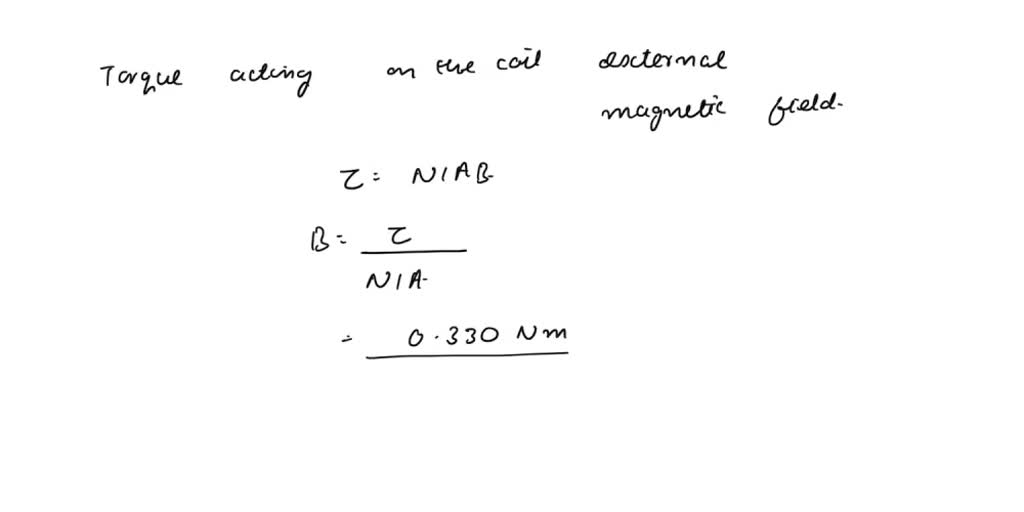 Torque acting on the coil external
magnetic field.
τ = NIAB
B = τ
NIA.
= 0.330 Nm